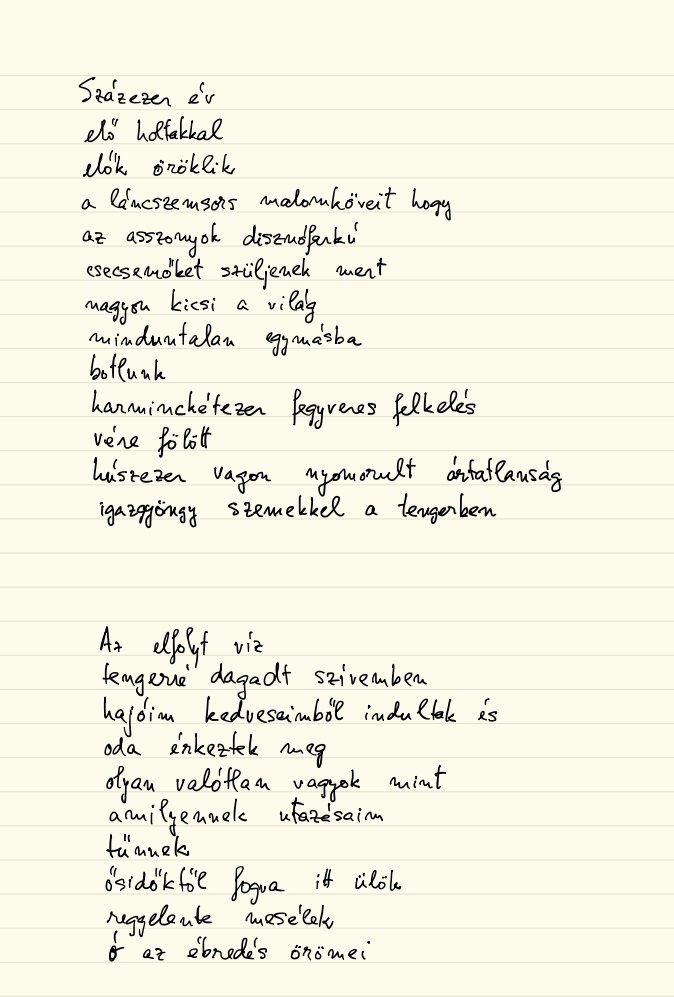 Százezer év
elő holtakkal
elők öröklik
a láncszemsors malomköveit hogy
az asszonyok disznófarkú
csecsemőket szüljenek mert
nagyon kicsi a világ
minduntalan egymásba
botlunk
harminckétezer fegyveres felkelés
vére fölött
húszezer vagon nyomorult ártatlanság
igazgyöngy szemekkel a tengerben
Az elfolyt víz
tengerré dagadt szívemben
hajóim kedveseimből indultak és
oda érkeztek meg
olyan valótlan vagyok mint
amilyennek utazásaim
tűnnek
ősidőktől fogva itt ülök
reggelente mesélek
ó az ébredés örömei